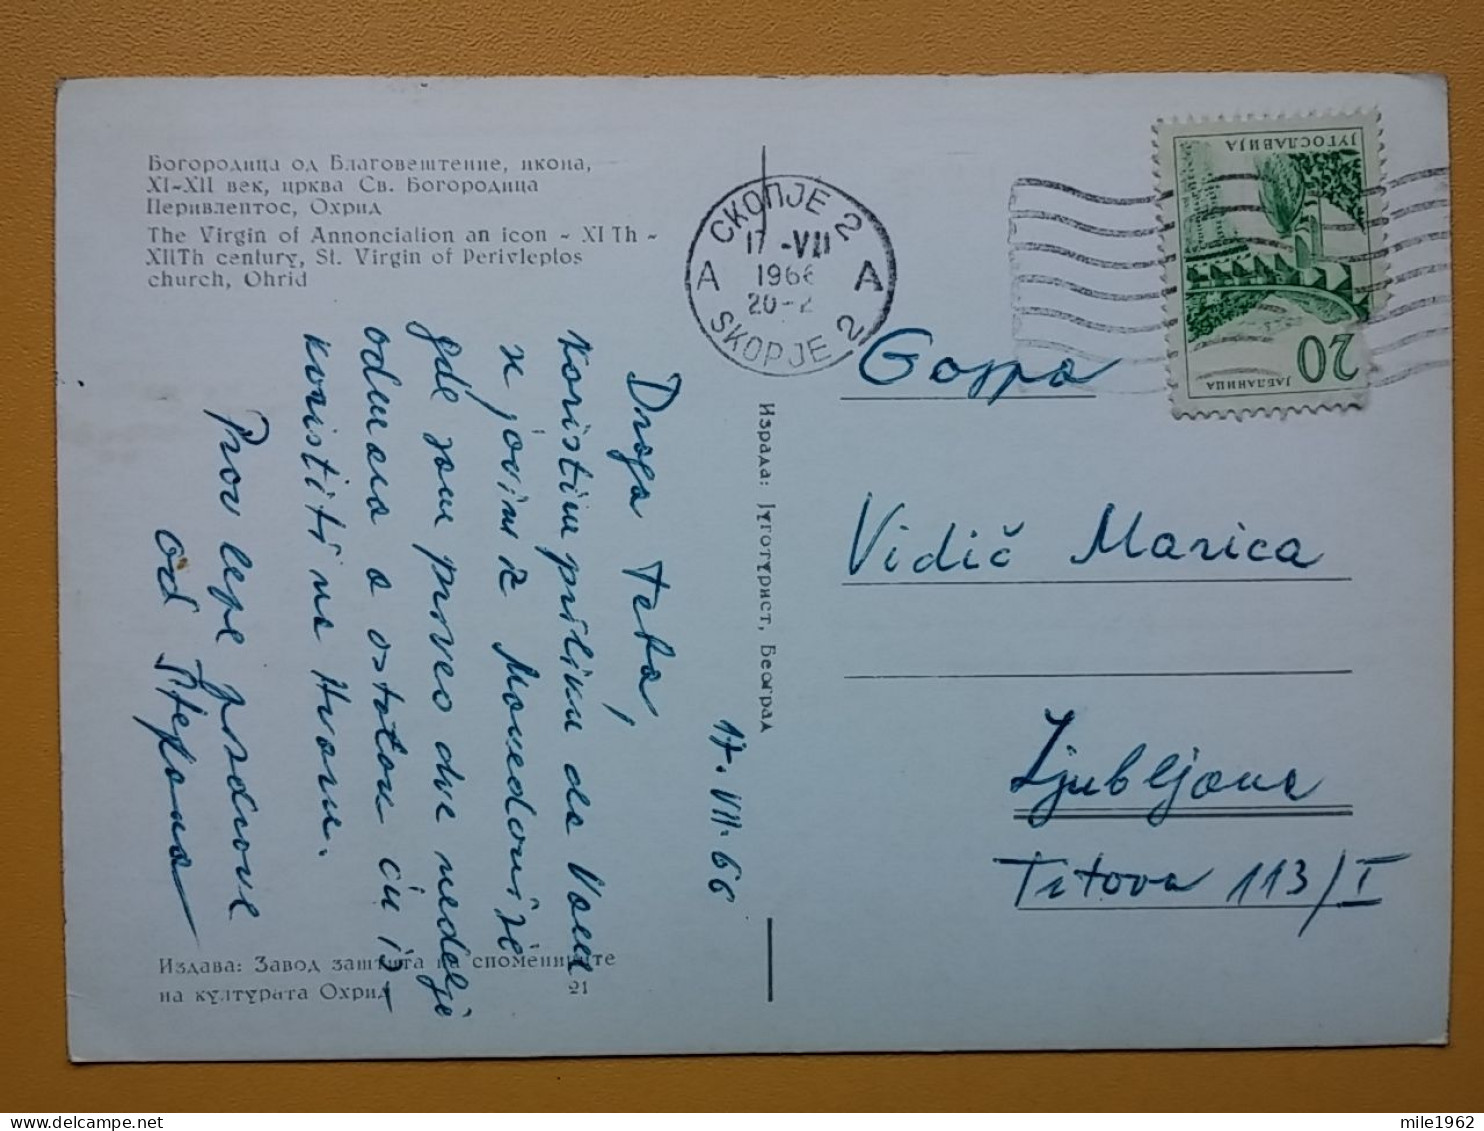 Богородица од Благовештение, икона,
XI-XII век, црква Св. Богородица
Перивлептос, Охрид
The Virgin of Annoncialion an icon - XI Th -
XIITh century, St. Virgin of Perivleptos
church, Ohrid
СКОПЈЕ 2
17 -VII
1966
20-2
A A
SKOPJE 2
ЈУГОСЛАВИЈА
ЈАБЛАНИЦА
20
17. VII. 66
Draga Teta,
Koristim priliku da Vam
se javim iz Makedonije
gde sam proveo dve nedelje
odmora a ostatak ću is-
koristiti na Hvaru.
Prav lepe pozdrave
od Stefana
Израда: Југотурист, Београд
Издава: Завод заштита на спомениците
на културата Охрид 21
Gospa
Vidič Marica
Ljubljana
Titova 113/I
mile1962